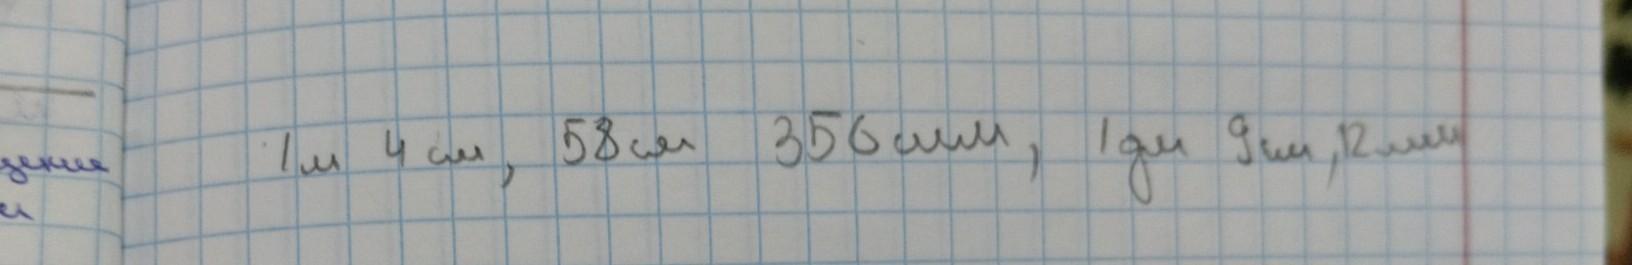 1м 4 см, 58см 356мм, 1дм 9см, 12мм